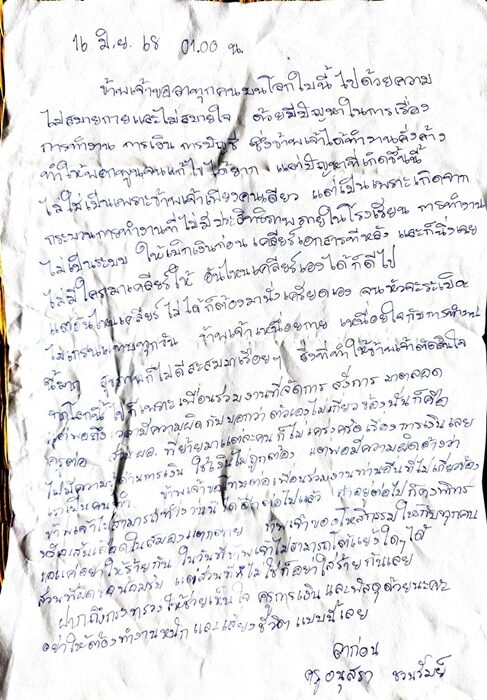 16 มิ.ย. 68 01.00 น
ข้าพเจ้าขอลาทุกคนบนโลกใบนี้ ไปด้วยความ
ไม่สบายกายและไม่สบายใจ ด้วยมีปัญหาในการเรื่อง
การทำงาน การเงิน การบัญชี ซึ่งข้าพเจ้าได้ทำงานคั่งค้าง
ทำให้พอกพูนจนแก้ไขได้ยาก แต่ปัญหาที่เกิดขึ้นนี้
ไม่ใช่เป็นเพราะข้าพเจ้าเพียงคนเดียว แต่เป็นเพราะเกิดจาก
กระบวนการทำงานที่ไม่มีประสิทธิภาพภายในโรงเรียน การทำงาน
ไม่เป็นระบบ ให้เบิกเงินก่อน เคลียร์เอกสารทีหลัง และก็นิ่งเฉย
ไม่มีใครมาเคลียร์ให้ อันไหนเคลียร์เองได้ก็ดีไป
แต่อันไหนเคลียร์ไม่ได้ ก็ต้องมานั่งเครียดเอง จนหัวจะระเบิด
ทุกวัน ข้าพเจ้าเหนื่อยกาย เหนื่อยใจกับการทำงาน
นี้มาก สุขภาพก็ไม่ดีสะสมมาเรื่อยๆ สิ่งที่ทำให้ข้าพเจ้าตัดสินใจ
ก็เพราะเพื่อนร่วมงานที่จัดการ สั่งการ มาตลอด
แต่พอถึงเวลามีความผิดกับบอกว่าตัวเองไม่เกี่ยวข้องนั่นก็คือ
ส่วน ผอ. ที่ย้ายมาแต่ละคนก็ไม่เคร่งครัดเรื่องการเงินเลย
ด้านการเงิน ใช้เงินไม่ถูกต้อง แต่พอมีความผิด
เพื่อนร่วมงานท่านอื่นที่ไม่เกี่ยวข้อง
ข้าพเจ้าไม่สามารถทำงาน ต่อไปแล้ว ถ้าอยู่ต่อไปก็คงพิการ
หรือเส้นเลือดในสมองแตกตาย ข้าพเจ้าขออโหสิกรรมให้กับทุกคน
ขอแค่อย่าให้ร้ายกัน ในวันที่ข้าพเจ้าไม่สามารถโต้แย้งใดๆ ได้
ส่วนที่ผิดขอน้อมรับ แต่ส่วนที่ไม่ใช่ก็อย่าใส่ร้ายกันเลย
ฝากถึงกระทรวงให้ช่วยเห็นใจ ครูการเงิน และพัสดุด้วยนะคะ
อย่าให้ต้องทำงานหนัก และเสี่ยงชีวิต แบบนี้เลย
ลาก่อน
ครูอนุสรา